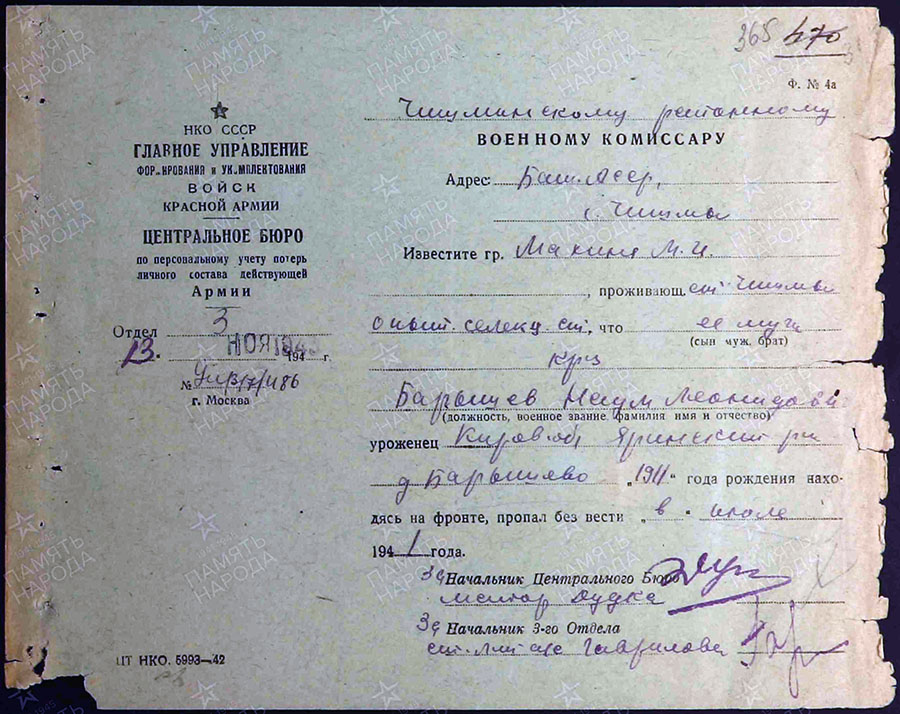 365 470
Ф. № 4а
НКО СССР
ГЛАВНОЕ УПРАВЛЕНИЕ
ФОРМИРОВАНИЯ И УКОМПЛЕКТОВАНИЯ
ВОЙСК
КРАСНОЙ АРМИИ
ЦЕНТРАЛЬНОЕ БЮРО
по персональному учету потерь
личного состава действующей
Армии
Отдел 3
13. НОЯ 1943 194 г.
№
г. Москва
Чишминскому районному
ВОЕННОМУ КОМИССАРУ
Адрес: Баш. Асср,
с. Чишмы
Известите гр. Махиня М. И.
, проживающ. ст. Чишмы
опыт. селекц. ст, что ее муж
(сын муж. брат)
крц
Барышев Наум Леонидович
(должность, военное звание фамилия имя и отчество)
уроженец Киров. обл Яранский рн
д Барышево „1911“ года рождения нахо-
дясь на фронте, пропал без вести „в“ июле
1941 года.
Зд Начальник Центрального Бюро
майор Дудка
Зд Начальник 3-го Отдела
Гаврилова
ЦТ НКО. 5993—42
ПАМЯТЬ НАРОДА